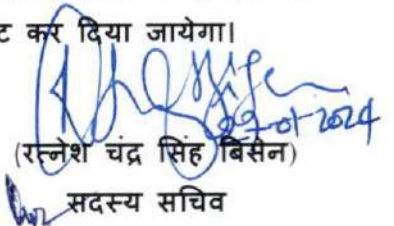 ट कर दिया जायेगा।
09-01-2024
(रत्नेश चंद्र सिंह बिसेन)
सदस्य सचिव